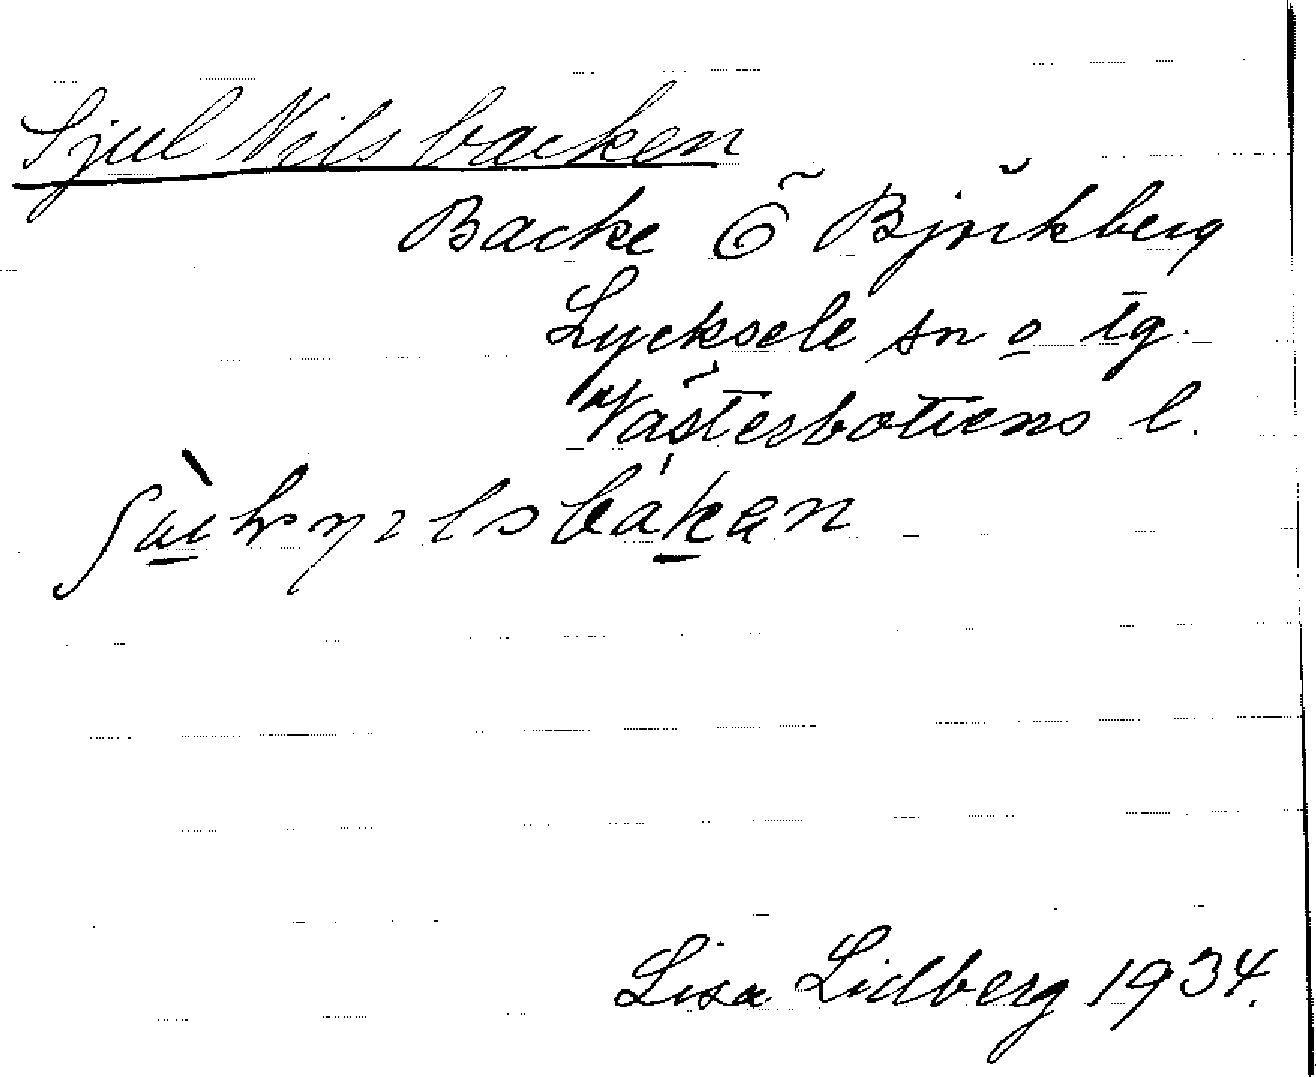 Sjul Nilsbacken
Backe Ö Björkberg
Lycksele sn o tg.
Västerbottens l.
Lisa Lidberg 1934.